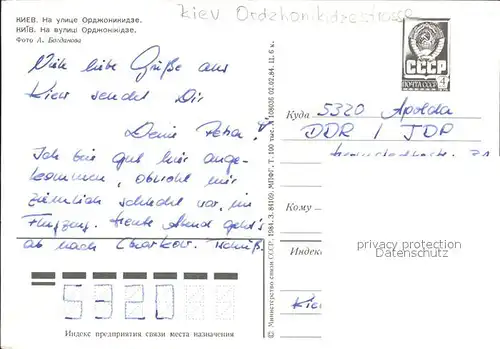 Kiev Ordzhonikidzestrasse
КИЕВ. На улице Орджоникидзе.
КИЇВ. На вулиці Орджонікідзе.
Фото А. Богданова
Viele liebe Grüße aus
Kiew sendet Dir
Deine Petra!
Ich bin gut hier ange-
kommen, obwohl mir
ziemlich schlecht war, im
Flugzeug. Heute Abend geht's
ab nach Charkow. Tschüß.
5320
Индекс предприятия связи места назначения
© Министерство связи СССР, 1984. З. 84109, МПФГ. Т. 100 тыс. 108038 02.02.84. Ц. 6 к.
СССР
4
Куда 5320 Apolda
DDR / ГДР
21
Кому
privacy protection
Datenschutz
Индекс
Kie